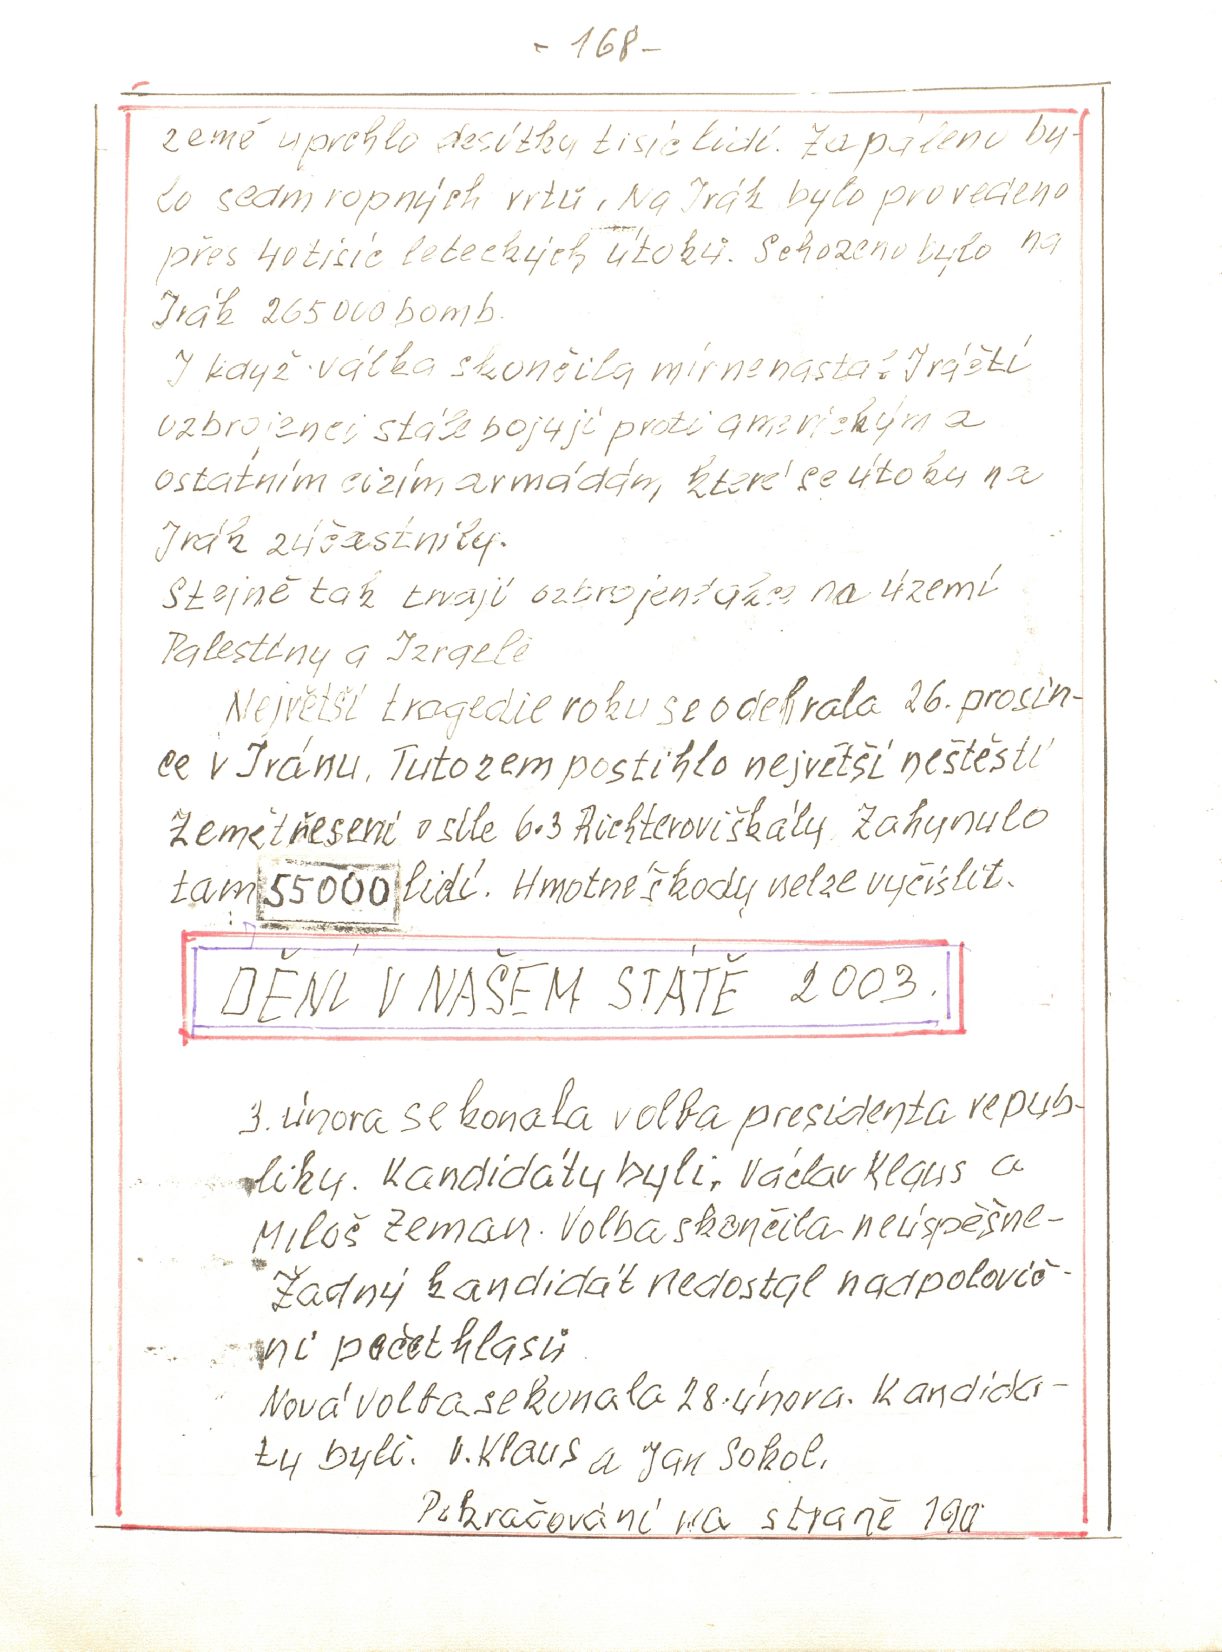 - 168 -
země uprchlo desítky tisíc lidí. Zapáleno by-
lo sedm ropných vrtů. Na Irák bylo provedeno
přes 40 tisíc leteckých útoků. Schozeno bylo na
Irák 265 000 bomb.
I když válka skončila mír nenastal Iráčtí
ozbrojenci stále bojují proti americkým a
ostatním cizím armádám, které se útoku na
Irák zúčastnily.
Stejně tak trvají ozbrojené akce na území
Palestiny a Izraele
Největší tragedie roku se odehrala 26. prosin-
ce v Iránu. Tuto zem postihlo největší neštěstí
Zemětřesení o síle 6.3 Richteroviškály Zahynulo
tam 55000 lidí. Hmotné škody nelze vyčíslit.
DĚNÍ V NAŠEM STÁTĚ 2003.
3. února se konala volba presidenta repub-
liky. Kandidáty byli. Václav Klaus a
Miloš Zeman. Volba skončila neúspěšne-
Žadný kandidát nedostal nadpolovič-
ní počet hlasů
Nová volba se konala 28. února. Kandida-
ty byli. V. Klaus a Jan Sokol.
Pokračování na straně 190